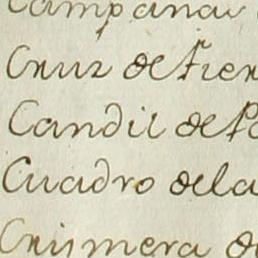 Campana
Cruz de fier
Candil de
Cuadro dela
Crismera de